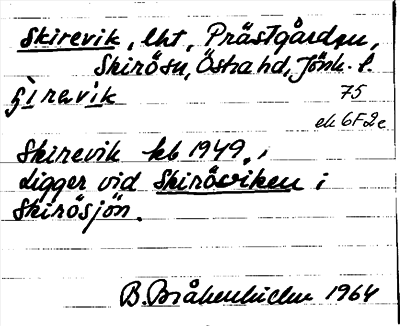 Skirevik, lht, Prästgården,
Skirö sn, Östra hd, Jönk. l.
75
ek 6F2c
Skirevik kb 1949,
Ligger vid Skiröviken i
Skirösjön.
B. Bråkenhielm 1964